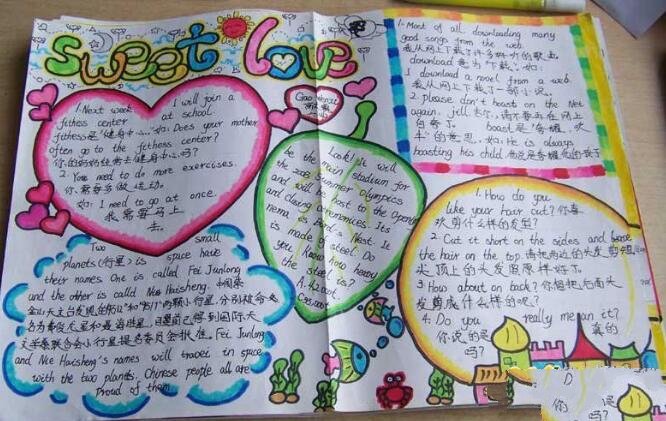 sweet love
1. Next week I will join a
fitness center at school.
fitness是"健身中心".如: Does your mother
often go to the fitness center?
你的妈妈经常去健身中心吗?
2. You need to do more exercises.
你需要多做运动.
如: I need to go at once.
我需要马上
去.
Look! It will
be the main stadium for
the 2008 Summer Olympics
and will be host to the opening
and closing ceremonies. Its
nema is Bird's Nest. It
is made of steel. Do
you know how heavy
the steel is?
A. 42.000t
1. Most of all downloading many
good songs from the web.
我从网上下载了许多好听的歌曲
download 意为"下载".如:
I download a novel from a web.
我从网上下载了一部小说.
2. please don't boast on the Net
again, jell
boast是"吹
牛"的意思,如: He is always
boasting his child.
1. How do you
like your hair cut? 你喜
欢剪什么样的发型?
2. Cut it short on the sides and
the hair on the top. 请把两边的头发剪短
头顶上的头发留原样好了.
3. How about on back? 你想把后面头
发剪成什么样的呢?
4. Do you really mean it?
你说的是 真的
吗?
Two small
planets (行星) is space have
their names. One is called Fei Junlong
and the other is called Nee Haisheng. 中国紫
金山天文台发现的 两颗小行星,分别被命
名为费俊龙星和聂海胜星.
天文学联合会小行星提名委员会批准. Fei Junlong
and Nee Haisheng's names will travel in space
with the two planets, Chinese people all are
proud of them.
D
你 说
吗?